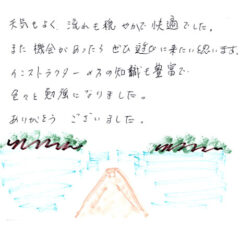 天気もよく、流れも穏やかで快適でした。
また機会があったらぜひ遊びに来たい思います。
インストラクターの知識も豊富で
色々と勉強になりました。
ありがとうございました。